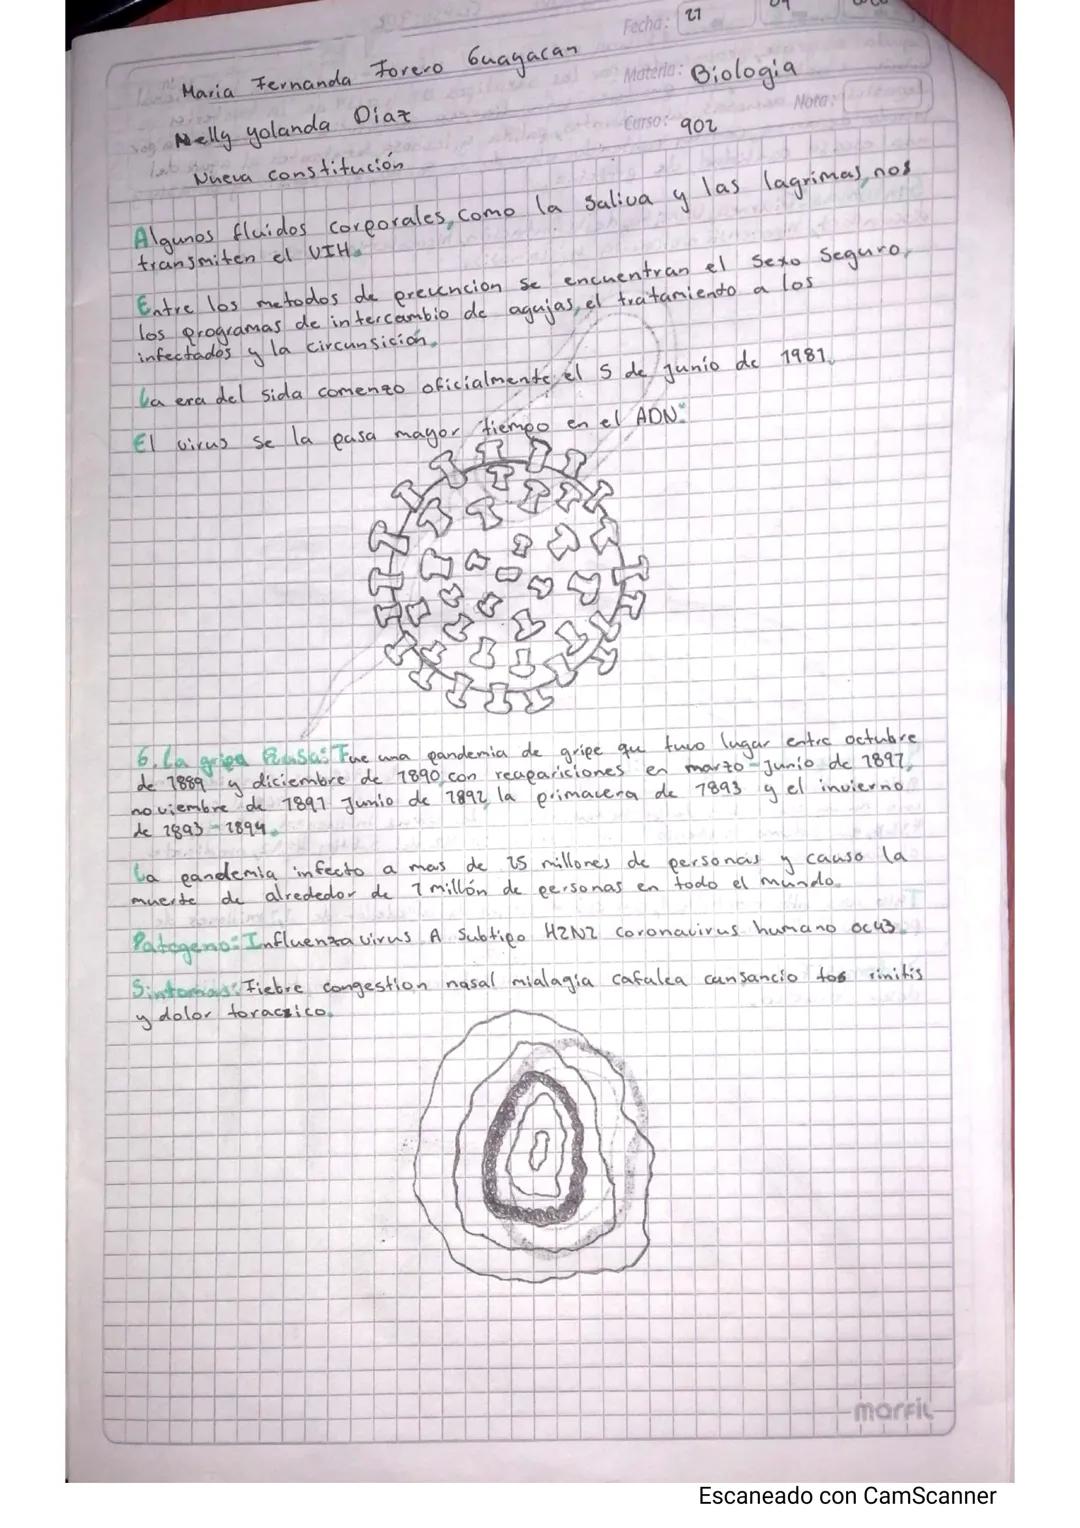 Fecha: 27
Maria Fernanda Forero Guagacan
Materia: Biologia
Nota:
Nelly yolanda Diaz
Curso: 902
Nueva constitución
Algunos fluidos corporales, como la saliva y las lagrimas, nos
transmiten el VIH.
Entre los metodos de prevencion se encuentran el sexo seguro,
los programas de intercambio de agujas, el tratamiento a los
infectados y la circunsición.
La era del sida comenzo oficialmente el 5 de junio de 1981.
El virus se la pasa mayor tiempo en el ADN.
6. La gripa Rusa: Fue una pandemia de gripe que tuvo lugar entre octubre
de 1889 y diciembre de 1890, con reapariciones en marzo-junio de 1891,
noviembre de 1891 Junio de 1892, la primavera de 1893 y el invierno
de 1893-1894.
La pandemia infecto a mas de 25 millones de personas y causo la
muerte de alrededor de 1 millón de personas en todo el mundo.
Patogeno: Influenza virus A Subtipo H2N2 coronavirus humano oc43.
Sintomas: Fiebre congestion nasal mialagia cafalea cansancio tos rinitis
y dolor toracico.
marfil
Escaneado con CamScanner